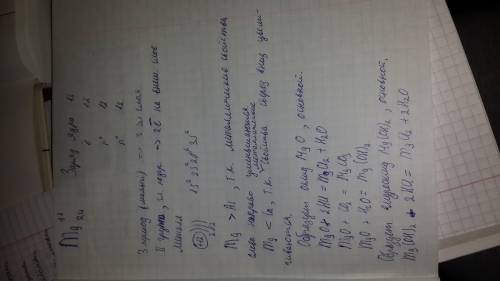 Mg +12 24 Заряд ядра 12
ē 12
p⁺ 12
n⁰ 12
3 период (малый) => 3 эл. слоя
II группа, гл. подгр. => 2ē на внеш. слое
металл 1s² 2s² 2p⁶ 3s²
+12 ) ) )
2 8 2
Mg > Al, т.к. металлические свойства
слева направо уменьшаются
Mg < Ca, т.к. металлические свойства сверху вниз увели-
чиваются.
Образует оксид MgO, основной.
MgO + 2HCl = MgCl₂ + H₂O
MgO + CO₂ = MgCO₃
MgO + H₂O = Mg(OH)₂
Образует гидроксид Mg(OH)₂, основной.
Mg(OH)₂ + 2HCl = MgCl₂ + 2H₂O